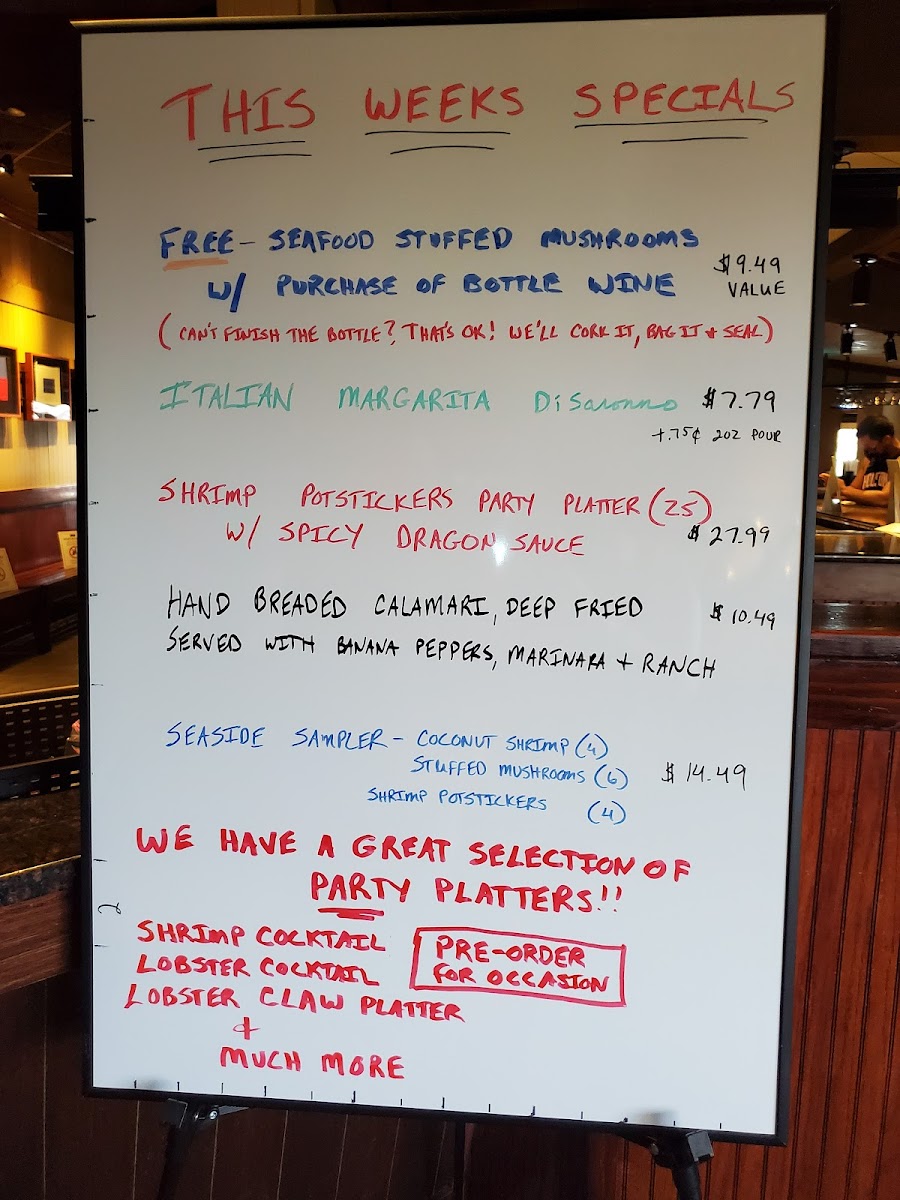 THIS WEEKS SPECIALS
FREE - SEAFOOD STUFFED MUSHROOMS
W/ PURCHASE OF BOTTLE WINE
$9.49
VALUE
(CAN'T FINISH THE BOTTLE? THAT'S OK! WE'LL CORK IT, BAG IT + SEAL)
ITALIAN MARGARITA DiSaronno $7.79
+.75¢ 2OZ POUR
SHRIMP POTSTICKERS PARTY PLATTER (25)
W/ SPICY DRAGON SAUCE $27.99
HAND BREADED CALAMARI, DEEP FRIED $10.49
SERVED WITH BANANA PEPPERS, MARINARA + RANCH
SEASIDE SAMPLER - COCONUT SHRIMP (4)
STUFFED MUSHROOMS (6) $14.49
SHRIMP POTSTICKERS (4)
WE HAVE A GREAT SELECTION OF
PARTY PLATTERS!!
SHRIMP COCKTAIL
LOBSTER COCKTAIL
LOBSTER CLAW PLATTER
&
MUCH MORE
PRE-ORDER
FOR OCCASION